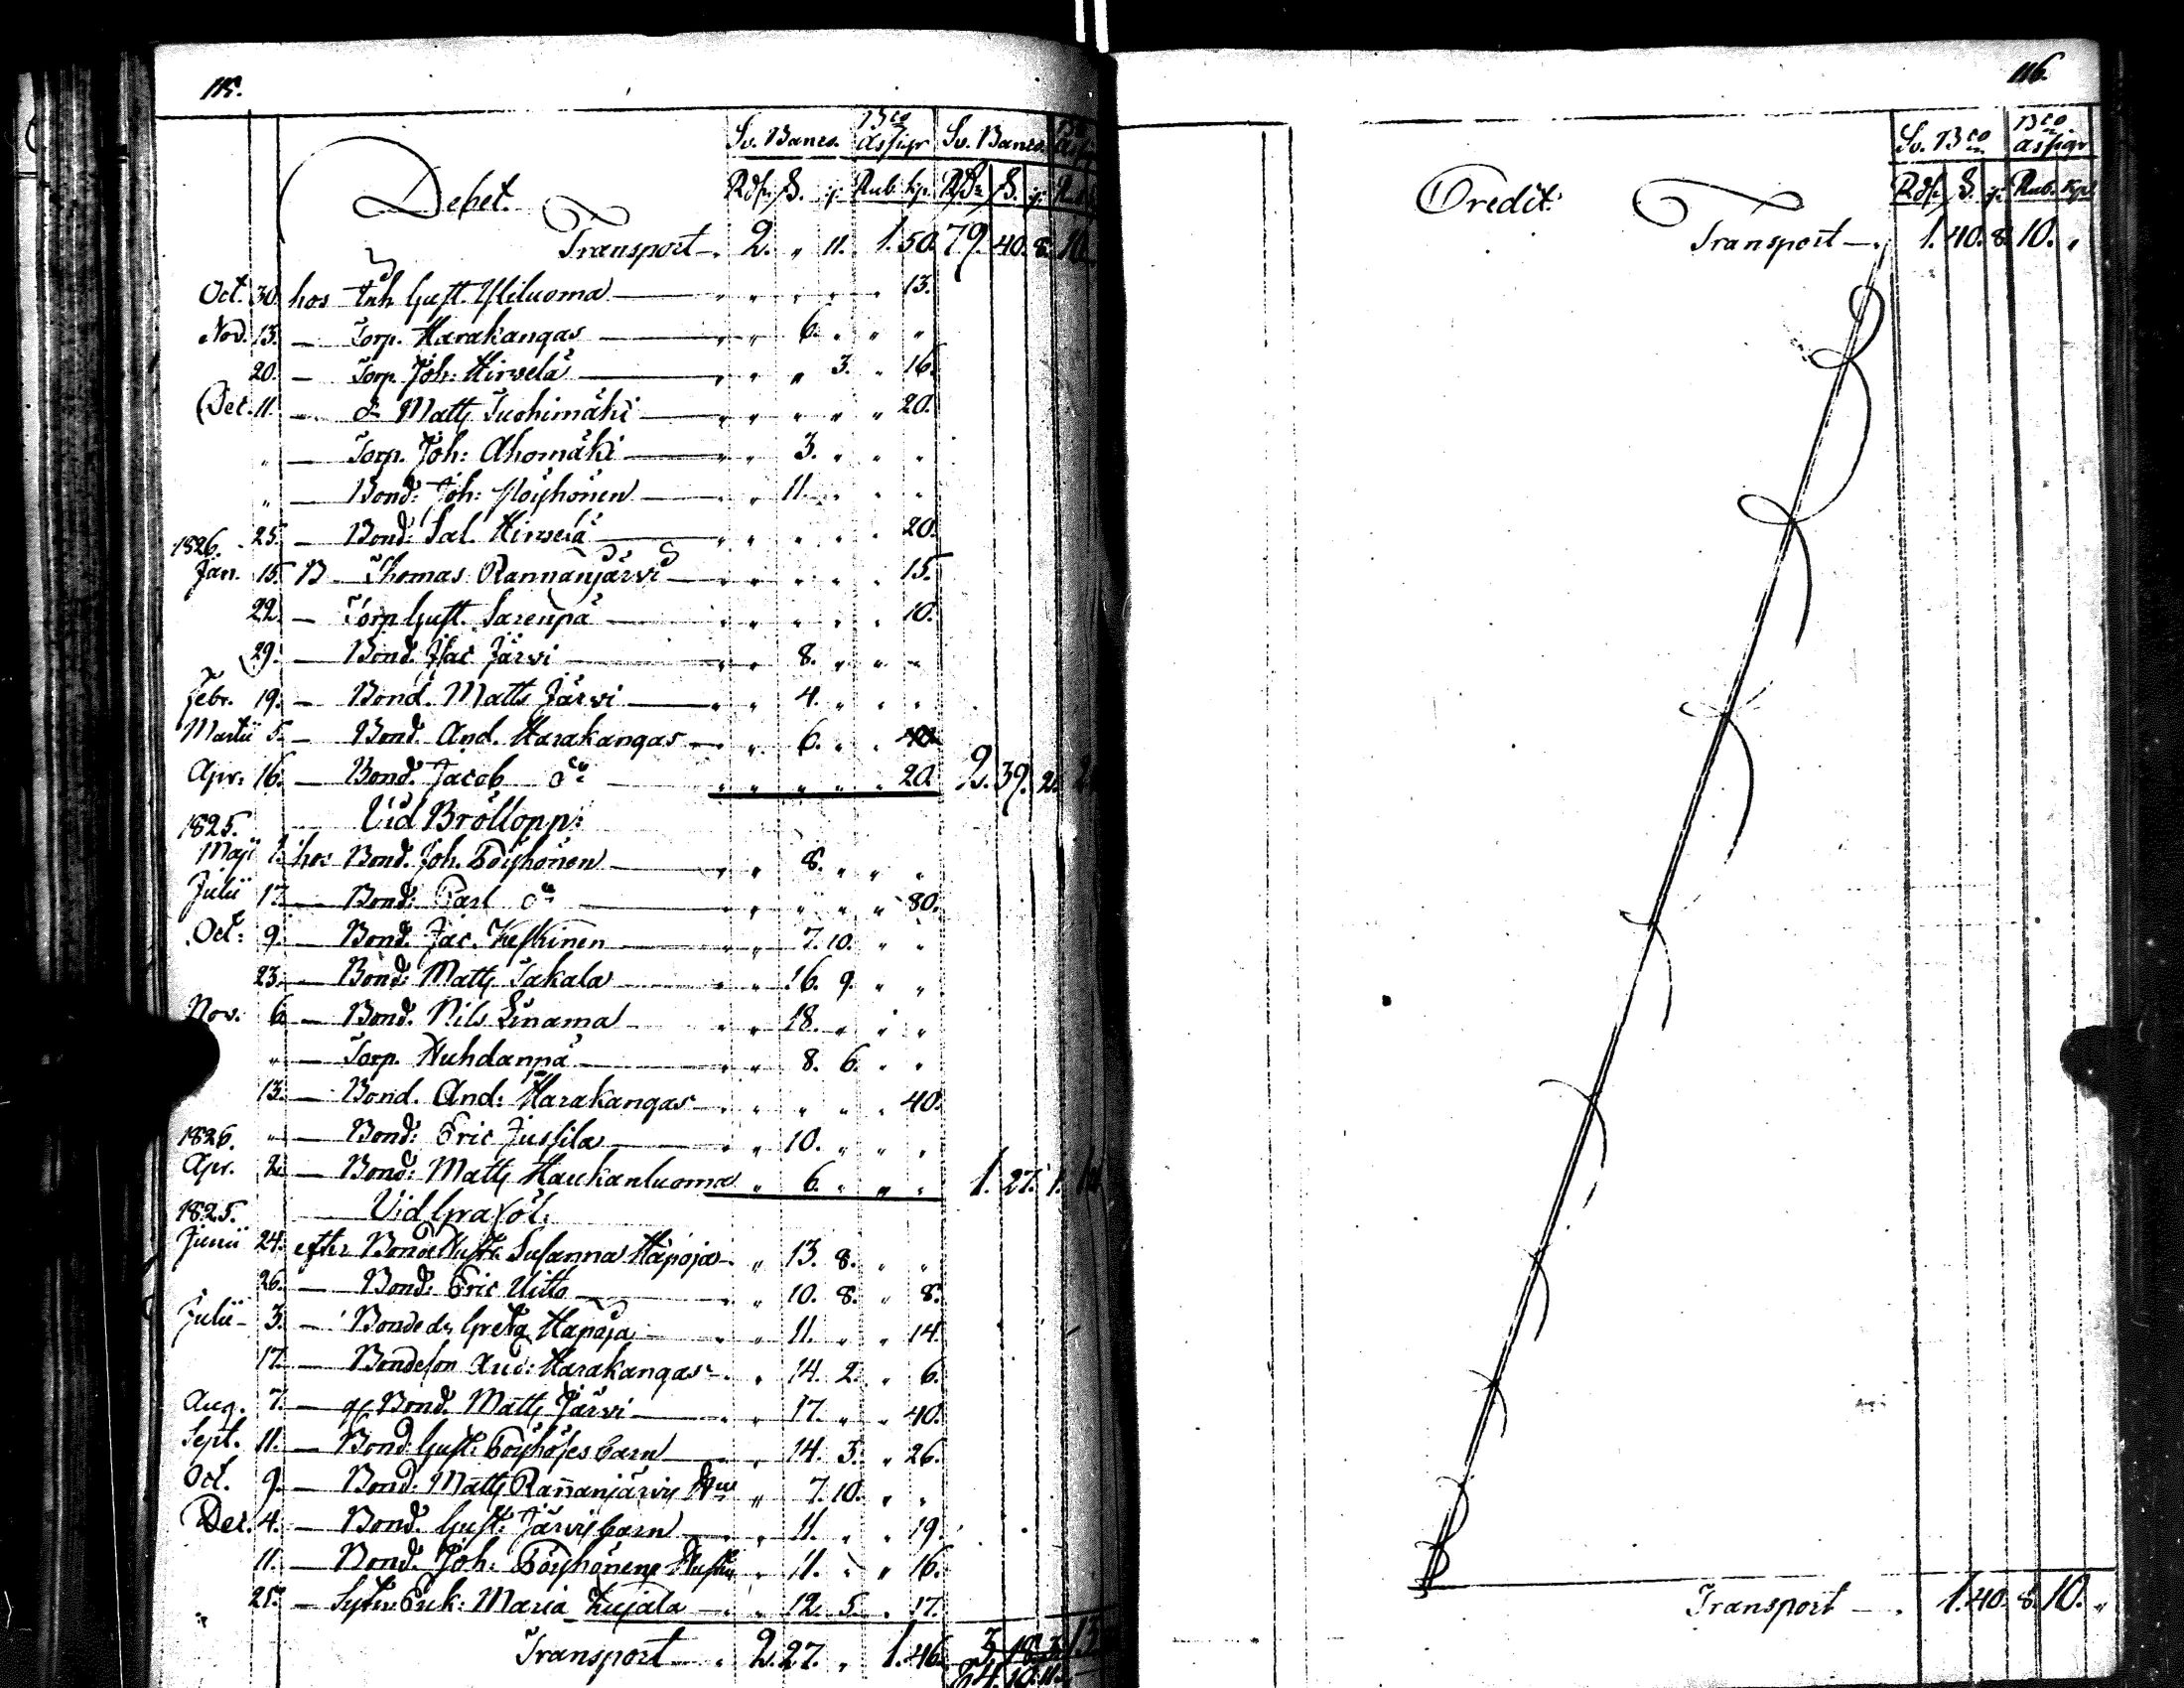 115.
Sv. Banco. Bco Assigr Sv. Banco.
Debet. Rdr S. Rub. kp. Rdr S.
Transport 2. " 11. 1. 50. 79. 40. 8. 10.
Oct. 30. hos Inh Gust. Yliluoma " " " " " 13.
Nov. 13. — Torp. Harakangas " " 6. " " "
20. — Torp. Joh: Hirvelä " " " 3. " 16.
Dec. 11. — do Matts Tuohimäki " " " " " 20.
" — Torp. Joh: Ahomäki " " 3. " " "
" — Bond: Joh: Pöyhönen " " 11. " " "
1826. 25. — Bond: Sal. Hirvelä " " " " " 20.
Jan. 15. B — Thomas Rannanjärvi " " " " " 15.
22. — Torp Gust. Sarenpä " " " " " 10.
29. — Bond. Isac Järvi " " 8. " " "
Febr. 19. — Bond. Matts Järvi " " 4. " " "
Martii 5. — Bond. And. Harakangas " " 6. " "
Apr. 16. — Bond. Jacob do " " " " " 20. 2. 39. 2.
1825. Vid Bröllopp:
Maji 1. hos Bond. Joh. Pöyhönen " " 8. " " "
Julii 17. — Bond: Carl do " " " " " 80.
Oct: 9. — Bond. Jac. Keskinen " " 7. 10. " "
23. — Bond: Matts Takala " " 16. 9. " "
Nov. 6. — Bond. Nils Linama " " 18. " " "
" — Torp. Huhdanpä " " 8. 6. " "
13. — Bond. And: Harakangas " " " " " 40.
1826. " — Bond: Eric Jussila " " 10. " " "
Apr. 2. — Bond: Matts Haukanluoma " 6. " " " 1. 27. 1.
1825. Vid Grafföl:
Junii 24. efter Bonde Hustr. Susanna Hapoja " " 13. 8. " "
26. — Bond: Eric Uitto " " 10. 8. " 8.
Julii 3. — Bonde dr Greta Hapoja " " 11. " " 14.
17. — Bondeson And: Harakangas " " 14. 2. " 6.
Aug. 7. — Bond. Matts Järvi " " 17. " " 40.
Sept. 11. — Bond Gust. Pöyhöses barn " " 14. 3. " 26.
Oct. 9. — Bond: Matts Rannanjärvis Hu " 7. 10. " "
Dec. 4. — Bond. Gust: Järvis barn " " 11. " " 19.
11. — Bond. Joh: Pöyhönens Hustru " 11. " " 16.
25. — Enk: Maria Kujala " " 12. 5. " 17.
Transport " 2. 27. " 1. 46.
116.
Sv. Bco Bco Assigr
Credit: Rdr S. Rub. Kp.
Transport 1. 40. 8. 10. "
Transport 1. 40. 8. 10. "